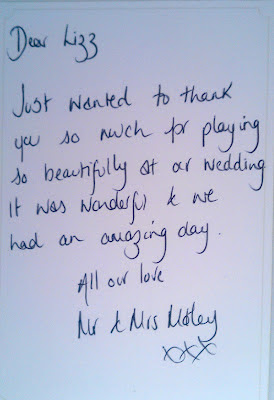 Dear Lizz
Just wanted to thank
you so much for playing
so beautifully at our wedding
It was wonderful & we
had an amazing day.
All our love
Mr & Mrs
xxx